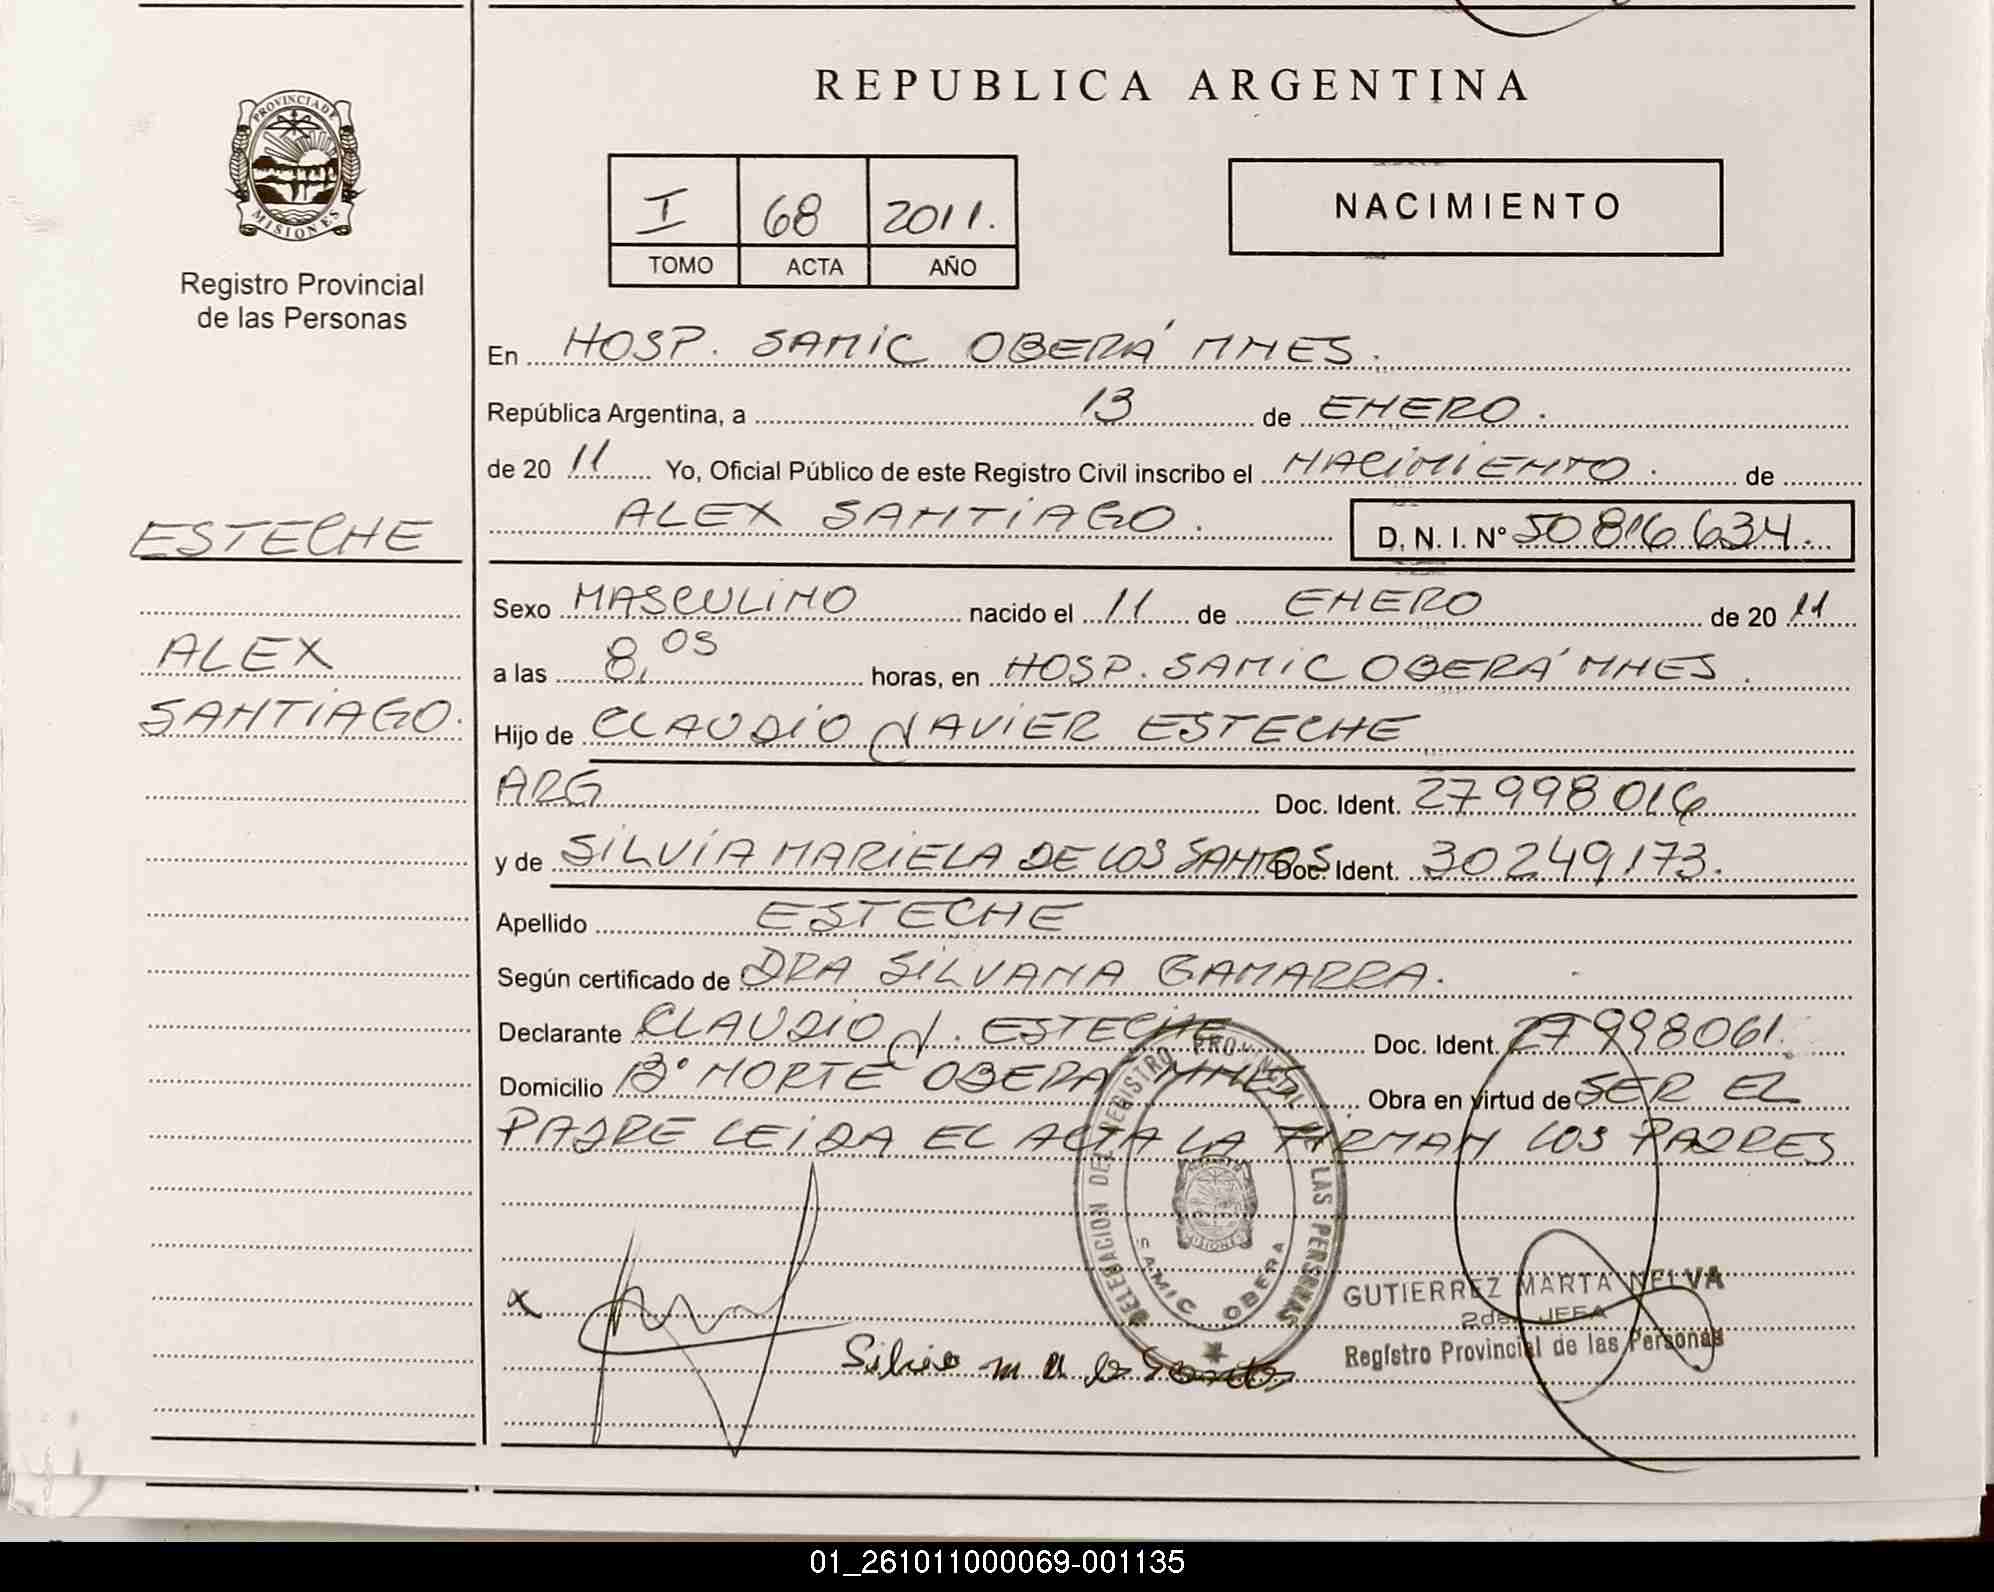 REPUBLICA ARGENTINA
PROVINCIA DE
MISIONES
Registro Provincial
de las Personas
I 68 2011.
TOMO ACTA AÑO
NACIMIENTO
En HOSP. SAMIC OBERÁ MNES.
República Argentina, a 13 de ENERO.
de 20 11 Yo, Oficial Público de este Registro Civil inscribo el NACIMIENTO. de
ALEX SANTIAGO. D. N. I. Nº 50816634.
ESTECHE
ALEX
SANTIAGO.
Sexo MASCULINO nacido el 11 de ENERO de 20 11
a las 8,05 horas, en HOSP. SAMIC OBERÁ MNES.
Hijo de CLAUDIO JAVIER ESTECHE
ARG Doc. Ident. 27998016
y de SILVIA MARIELA DE LOS SANTOS Doc. Ident. 30249173.
Apellido ESTECHE
Según certificado de DRA SILVANA GAMARRA.
Declarante CLAUDIO J. ESTECHE Doc. Ident. 27998061.
Domicilio Bº NORTE OBERA MNES Obra en virtud de SER EL
PADRE LEIDA EL ACTA LA FIRMAN LOS PADRES
DELEGACION DEL REGISTRO PROVINCIAL DE LAS PERSONAS
SAMIC OBERA
MISIONES
GUTIERREZ MARTA NELVA
2da JEFA
Registro Provincial de las Personas
x
Silvia m de los Santos
01_261011000069-001135